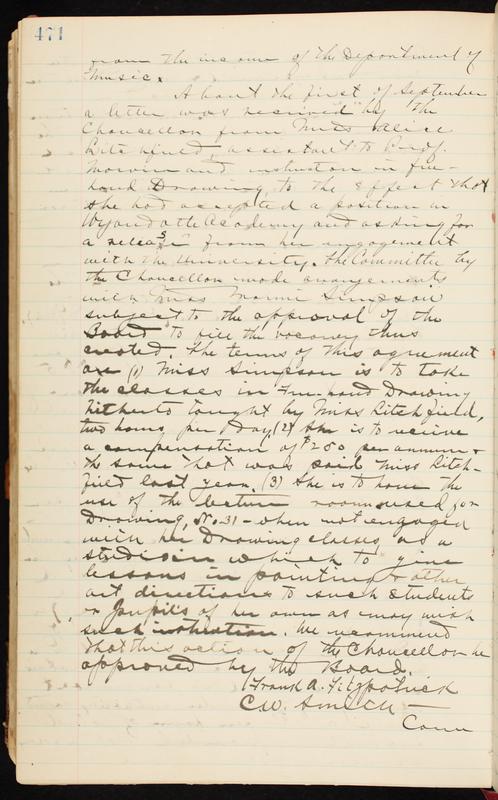 471
from the income of the Department of
Music.
About the first of September
a letter was received by the
Chancellor from Miss Alice
Litchfield, assistant to Prof.
Marvin and instructor in free-
hand Drawing to the effect that
she had accepted a position in
Wyandotte Academy and asking for
a release from her engagement
with the University. The Committee by
the Chancellor made arrangements
with Miss Mamie Simpson
subject to the approval of the
Board to fill the vacancy thus
created. The terms of this agreement
are (1) Miss Simpson is to take
the classes in Free-hand Drawing
hitherto taught by Miss Litchfield,
two hours per day, (2) She is to receive
a compensation of $250 per annum &
the same that was paid Miss Litch-
field last year. (3) She is to have the
use of the lecture room used for
Drawing, No. 31 - when not engaged
with her Drawing classes as a
studio in which to give
lessons in painting & other
art directions to such students
or pupils of her own as may wish
such instruction. We recommend
that this action of the Chancellor be
approved by the Board.
Frank A. Fitzpatrick
C.W. Smith
Com